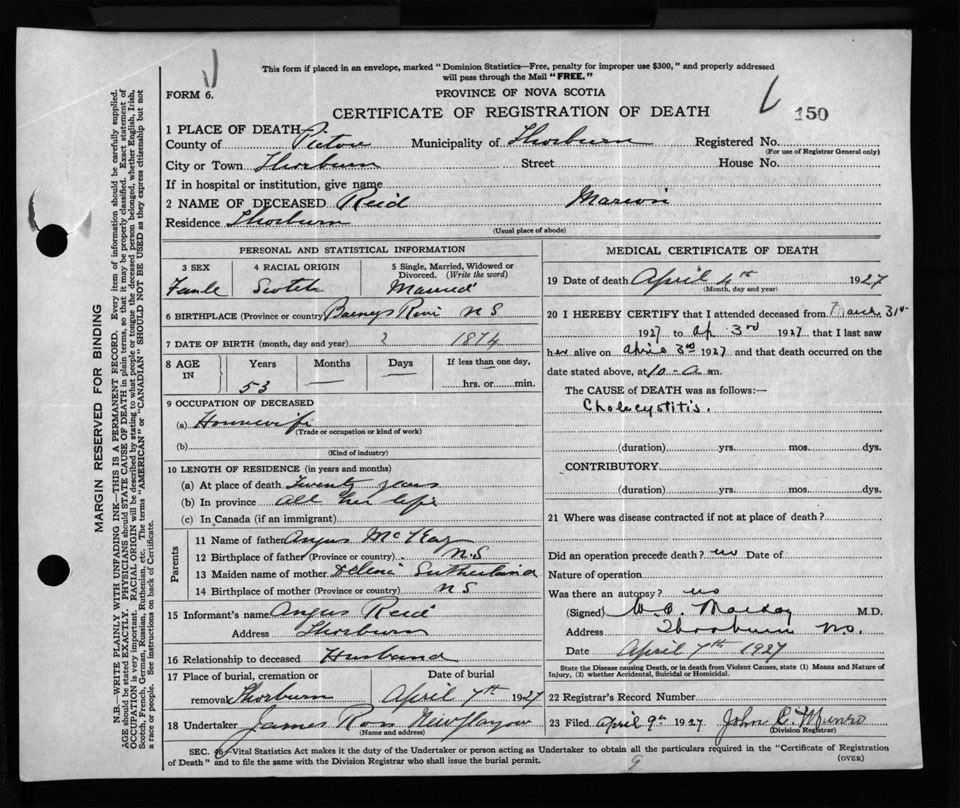 This form if placed in an envelope, marked "Dominion Statistics—Free, penalty for improper use $300," and properly addressed
will pass through the Mail "FREE."
FORM 6.
PROVINCE OF NOVA SCOTIA
CERTIFICATE OF REGISTRATION OF DEATH
150
1 PLACE OF DEATH
County of Pictou Municipality of Thorburn Registered No.
(For use of Registrar General only)
City or Town Thorburn Street House No.
If in hospital or institution, give name
2 NAME OF DECEASED Reid Marion
Residence Thorburn
(Usual place of abode)
PERSONAL AND STATISTICAL INFORMATION
3 SEX 4 RACIAL ORIGIN 5 Single, Married, Widowed or
Divorced. (Write the word)
Female Scotch Married
6 BIRTHPLACE (Province or country) Barneys River N S
7 DATE OF BIRTH (month, day and year) 1874
8 AGE Years Months Days If less than one day,
IN 53 — — hrs. or min.
9 OCCUPATION OF DECEASED
(a) Housewife
(Trade or occupation or kind of work)
(b)
(Kind of industry)
10 LENGTH OF RESIDENCE (in years and months)
(a) At place of death Twenty years
(b) In province All her life
(c) In Canada (if an immigrant)
Parents
11 Name of father Angus
12 Birthplace of father (Province or country) N.S
13 Maiden name of mother Sutherland
14 Birthplace of mother (Province or country) N S
15 Informant's name Angus Reid
Address Thorburn
16 Relationship to deceased Husband
17 Place of burial, cremation or Date of burial
removal Thorburn April 7th 1927
18 Undertaker James Ross New Glasgow
(Name and address)
MEDICAL CERTIFICATE OF DEATH
19 Date of death April 4th 1927
(Month, day and year)
20 I HEREBY CERTIFY that I attended deceased from March 31st
1927 to Ap. 3rd 1927 that I last saw
her alive on April 3rd 1927 and that death occurred on the
date stated above, at 10 - a m.
The CAUSE of DEATH was as follows:—
Cholecystitis.
(duration) yrs. mos. dys.
CONTRIBUTORY
(duration) yrs. mos. dys.
21 Where was disease contracted if not at place of death?
Did an operation precede death? no Date of
Nature of operation
Was there an autopsy? no
(Signed) Mackay M.D.
Address Thorburn NS.
Date April 7th 1927
State the Disease causing Death, or in death from Violent Causes, state (1) Means and Nature of
Injury, (2) whether Accidental, Suicidal or Homicidal.
22 Registrar's Record Number
23 Filed April 9th 1927 John C. Munro
(Division Registrar)
SEC. 46—Vital Statistics Act makes it the duty of the Undertaker or person acting as Undertaker to obtain all the particulars required in the "Certificate of Registration
of Death" and to file the same with the Division Registrar who shall issue the burial permit.
(OVER)
9
MARGIN RESERVED FOR BINDING
N.B.—WRITE PLAINLY WITH UNFADING INK—THIS IS A PERMANENT RECORD. Every item of information should be carefully supplied.
AGE should be stated EXACTLY. PHYSICIANS should STATE CAUSE OF DEATH in plain terms, so that it may be properly classified. Exact statement of
OCCUPATION is very important. RACIAL ORIGIN will be described by stating to what people or tongue the deceased person belonged, whether English, Irish,
Scotch, French, German, Russian, Ruthenian, etc. The terms "AMERICAN" or "CANADIAN" SHOULD NOT BE USED as they express citizenship but not
a race or people. See instructions on back of Certificate.